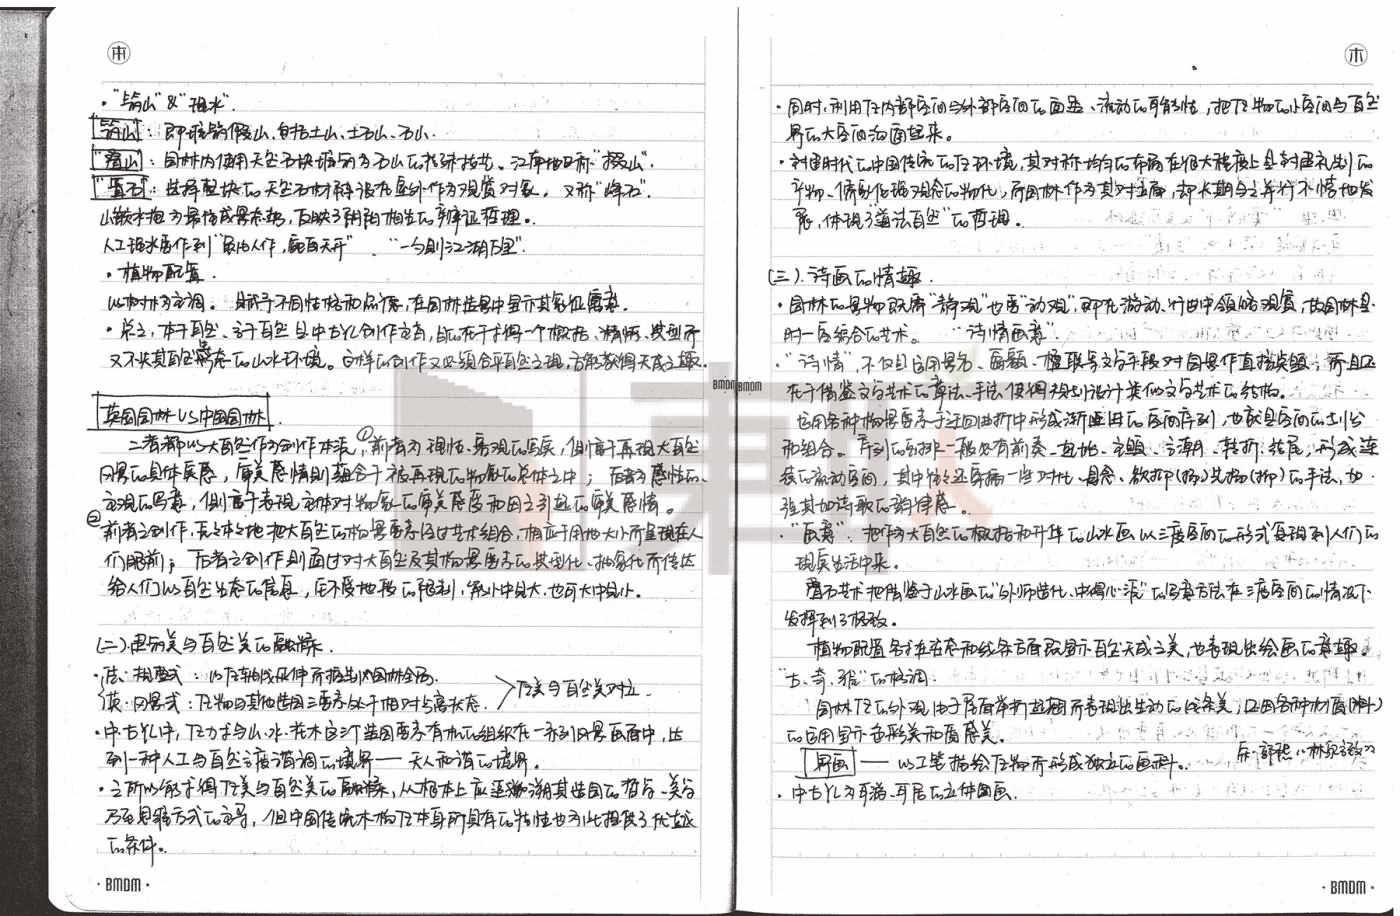 • "筑山" & "理水".
筑山: 即堆筑假山,包括土山、土石山、石山.
"叠山": 园林内使用天然石块堆筑为石山的特殊技艺。江南地区称"掇山".
"置石": 选择整块的天然石材陈设在室外作为观赏对象。又称"峰石".
山嵌水抱为最佳成景态势,反映了阴阳相生的辩证哲理。
人工理水要作到"虽由人作,宛自天开" "一勺则江湖万里".
• 植物配置.
以树木为主调。且赋予不同性格和品德,在园林造景中显示其象征寓意.
• 总之,本于自然、高于自然是中古YL创作主旨,目的在于求得一个概括、精炼、典型而
又不失其自然生态的山水环境。这样的创作又必须合乎自然之理,方能获得天成之趣.
英国园林 VS 中国园林.
二者都以大自然作为创作本底,①前者为理性、客观的写实,侧重于再现大自然
风景的具体实感,审美感情则蕴含于被再现的物象的总体之中;后者为感性的、
主观的写意,侧重于表现主体对物象的审美感受和因之引起的审美感情。
②前者之创作,原原本本地把大自然的构景要素经过艺术组合,相应于用地大小而呈现在人
们眼前;后者之创作则通过对大自然及其构景要素的典型化、抽象化而传达
给人们以自然生态的信息,它不受地段的限制,能小中见大,也可大中见小.
(二).建筑美与自然美的融糅.
• 法:规整式:以Jz轴线延伸所控制的园林全局.
英:风景式:Jz物与其他造园三要素处于相对分离状态. > Jz美与自然美对立.
• 中古YL中,Jz力求与山、水、花木这三个造园要素有机的组织在一系列风景画面中,达
到一种人工与自然高度谐调的境界—— 天人和谐的境界.
• 之所以能求得Jz美与自然美的融糅,从根本上应追溯其造园的哲学、美学
乃至思维方式的主导,但中国传统木构Jz本身所具有的特性也为此提供了优越
的条件。
• 同时,利用Jz内部空间与外部空间的通透、流动的可能性,把Jz物的小空间与自然
界的大空间沟通起来。
• 封建时代的中国传统的Jz环境,其对称均齐的布局在很大程度上是封建礼制的
产物、儒家伦理观念的物化,而园林作为其对立面,却长期与之并行不悖地发
展,体现了"道法自然"的哲理。
(三).诗画的情趣.
• 园林的景物既需"静观"也要"动观",即在游动、行进中领略观赏,故园林是
时—空综合的艺术。 "诗情画意"
"诗情" 不仅是运用景名、匾额、楹联等文学手段对园景作直接点题,而且还
在于借鉴文学艺术的章法、手法使得规划设计类似文学艺术的结构。
运用各种构景要素于迂回曲折中形成渐进的的空间序列,也就是空间的划分
和组合。序列的安排一般必有前奏、起始、主题、高潮、转折、结尾,形成连
续的流动空间,其中往往还穿插一些对比、悬念、欲抑(扬)先扬(抑)的手法,加
强其如诗歌的韵律感。
"画意" 把作为大自然的概括和升华的山水画以三度空间的形式复现到人们的
现实生活中来。
叠石艺术把借鉴于山水画的"外师造化、中得心源"的写意方法在三度空间的情况下
发挥到了极致。
植物配置务求在姿态和线条方面既显示自然天成之美,也表现出绘画的意趣。
"古、奇、雅"的格调.
园林Jz的外观,由于屋面举折起翘而表现出生动的线条美,还因各种材质(料)
的运用显示色彩美和质感美。
界画 —— 以工笔描绘Jz物所形成独立的画科。
• 中古YL为可游、可居的立体图画.
BMDM
BMDM
• BMDM •
• BMDM •